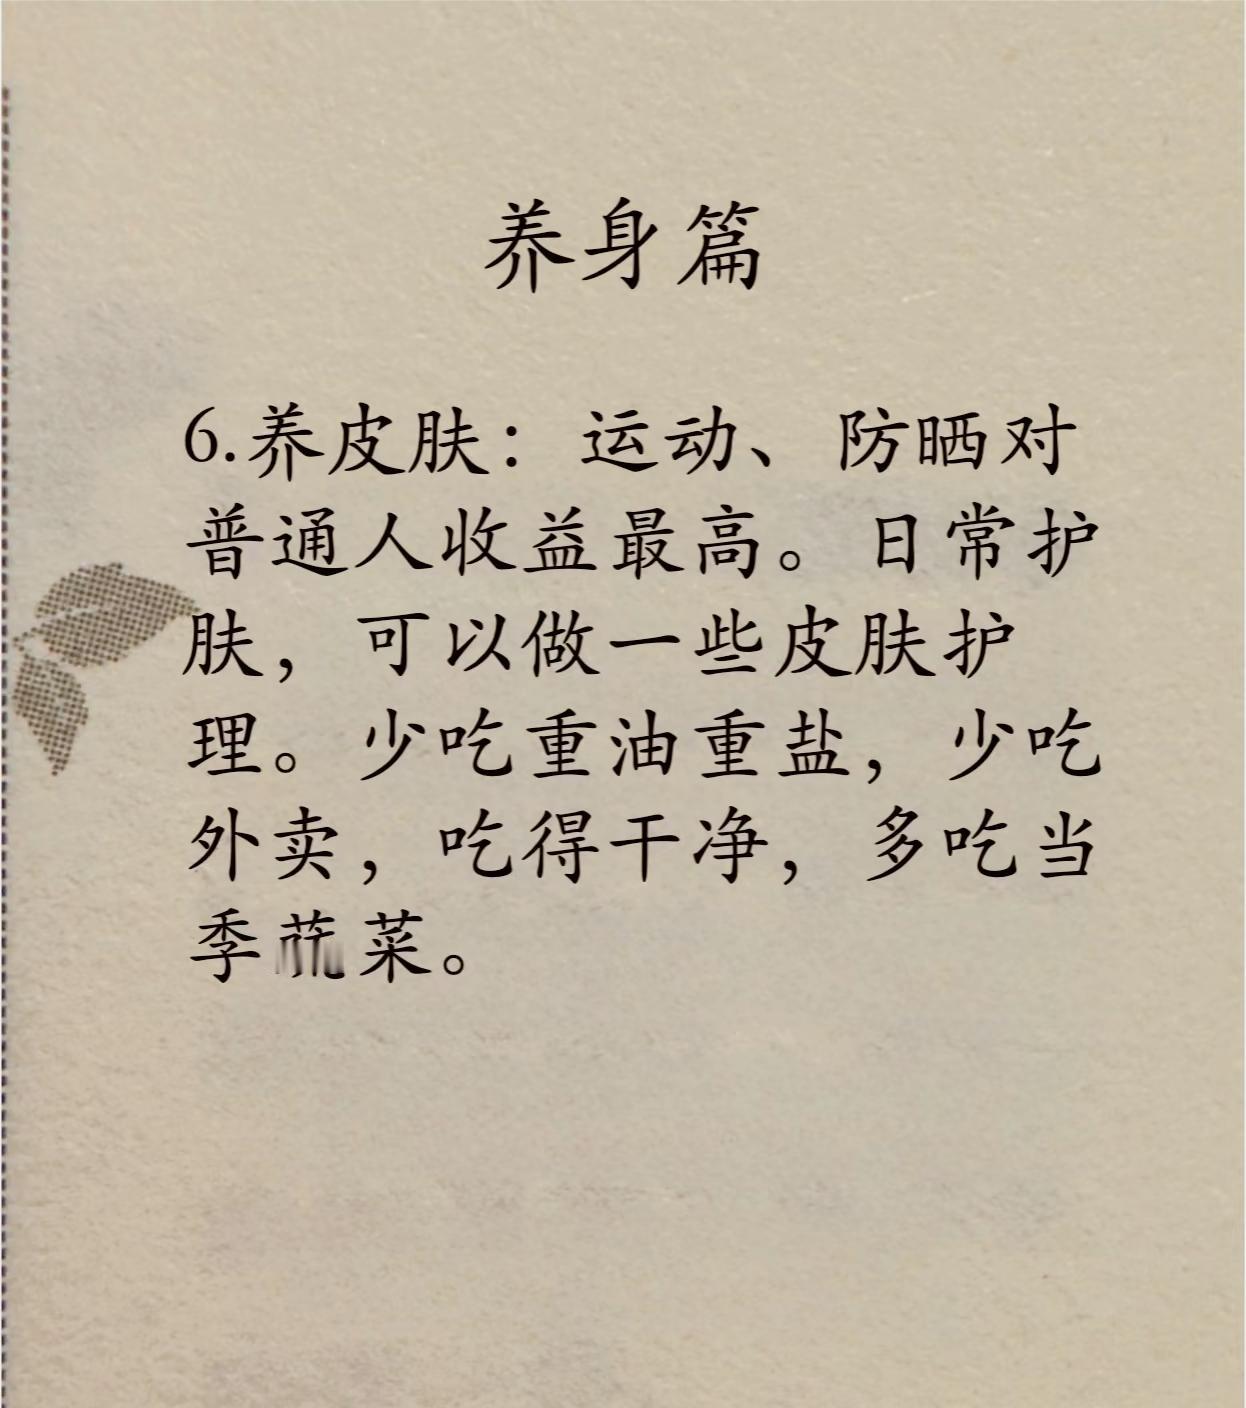 养身篇
6.养皮肤：运动、防晒对
普通人收益最高。日常护
肤，可以做一些皮肤护
理。少吃重油重盐，少吃
外卖，吃得干净，多吃当
季蔬菜。